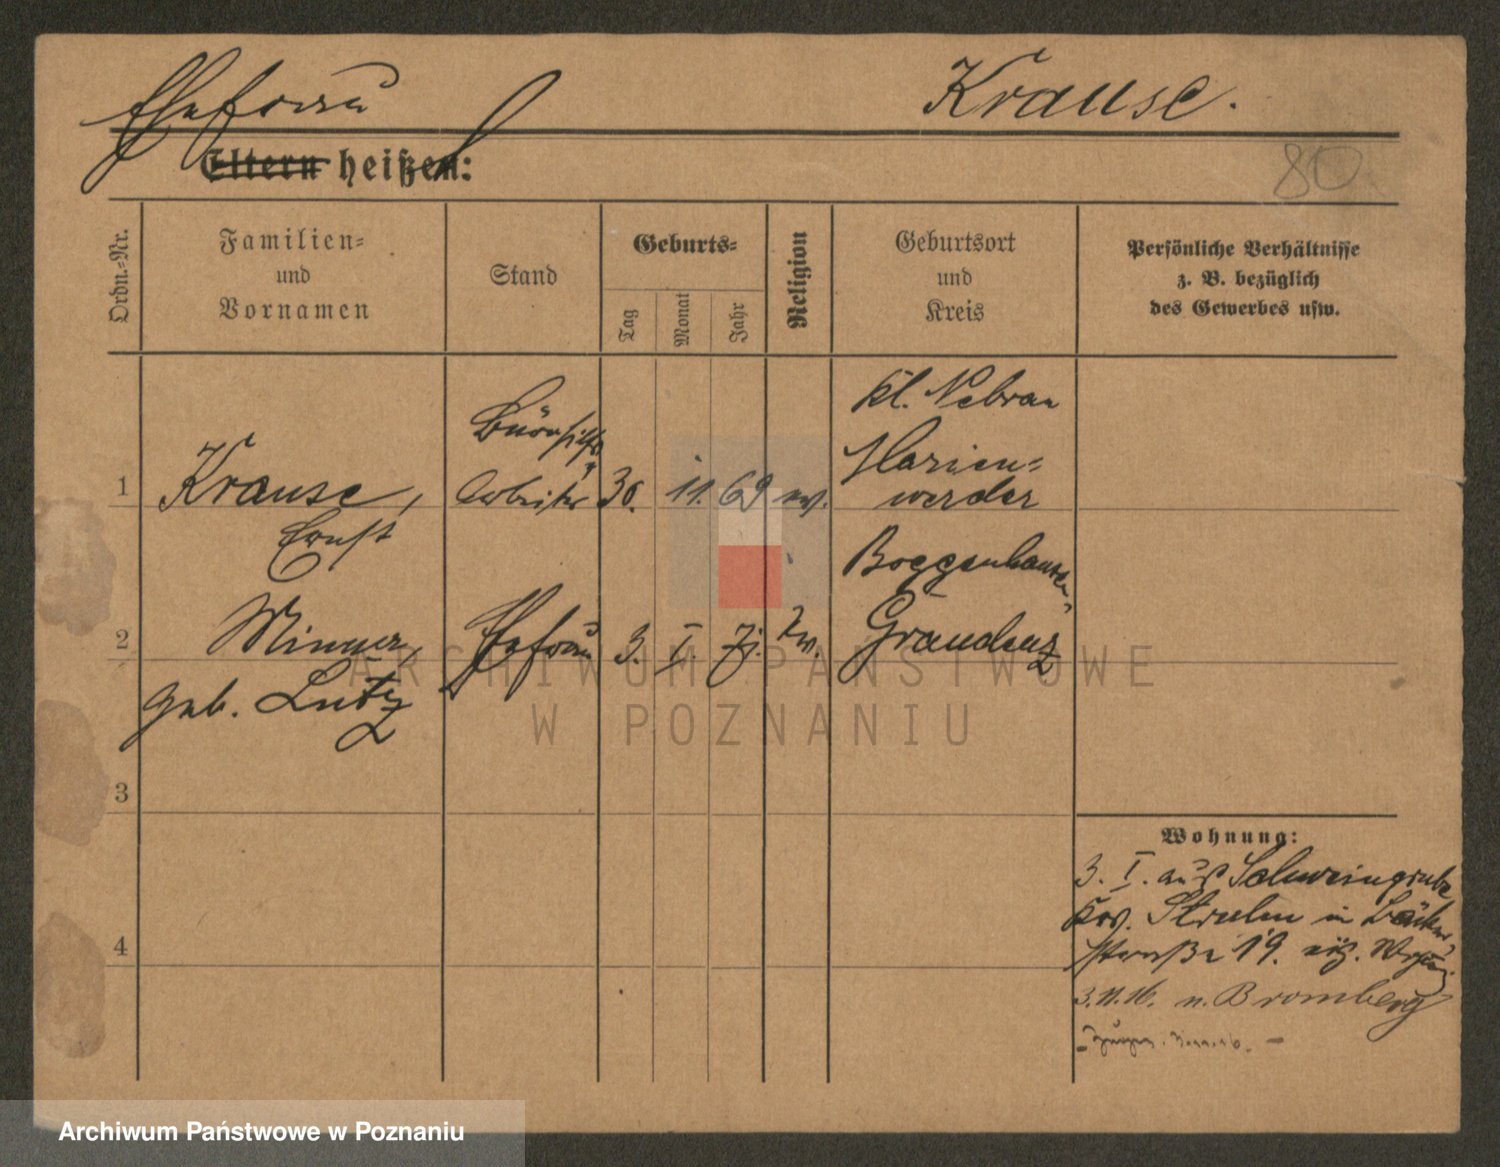 Ehefrau
Krause.
Eltern heißen:
80
Ordn.=Nr.
Familien=
und
Vornamen
Stand
Geburts=
Tag
Monat
Jahr
Religion
Geburtsort
und
Kreis
Persönliche Verhältnisse
z. B. bezüglich
des Gewerbes usw.
1
Krause,
Ernst
Arbeiter
30.
11.
69
ev.
Kl. Nebrau
Marien=
werder
2
Minna,
geb. Lutz
Ehefrau
3.
I.
71.
Ev.
Boggenhausen,
Graudenz
3
4
Wohnung:
3. I. aus Schweingrube
Krs. Stuhm in Bäcker
straße 19.
3.11.16. n. Bromberg
ARCHIWUM PAŃSTWOWE
W POZNANIU
Archiwum Państwowe w Poznaniu